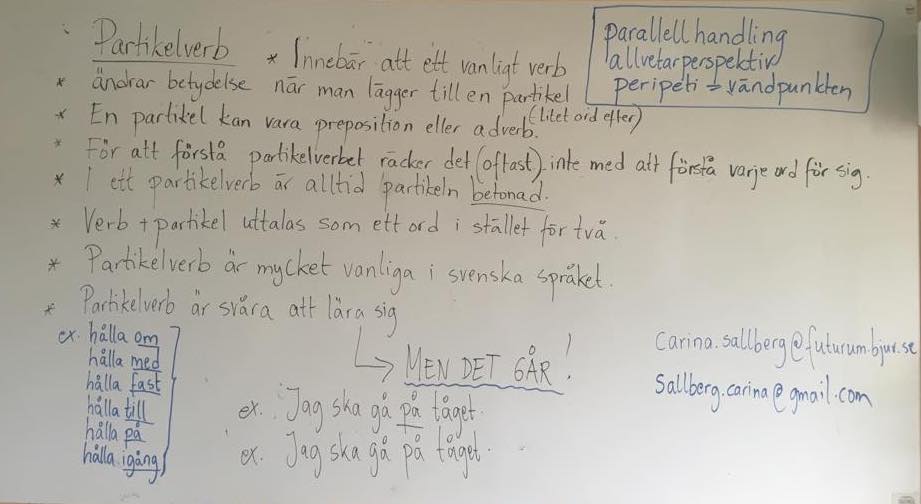 Partikelverb * Innebär att ett vanligt verb
* ändrar betydelse när man lägger till en partikel
* En partikel kan vara preposition eller adverb. (litet ord efter)
* För att förstå partikelverbet räcker det (oftast) inte med att förstå varje ord för sig.
* I ett partikelverb är alltid partikeln betonad.
* Verb + partikel uttalas som ett ord i stället för två.
* Partikelverb är mycket vanliga i svenska språket.
* Partikelverb är svåra att lära sig
→ MEN DET GÅR!
ex. hålla om
hålla med
hålla fast
hålla till
hålla på
hålla igång
ex. Jag ska gå på tåget.
ex. Jag ska gå på tåget.
parallellhandling
allvetarperspektiv
peripeti → vändpunkten
carina.sallberg@futurum.bjur.se
Sallberg.carina@gmail.com